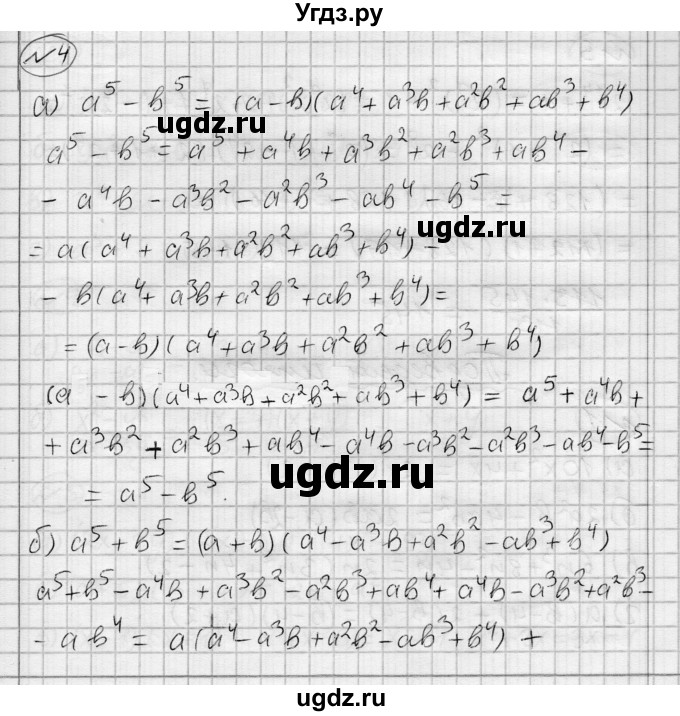 Угдз.ру
№4
а) a⁵ - b⁵ = (a - b)(a⁴ + a³b + a²b² + ab³ + b⁴)
ugdz.ru
a⁵ - b⁵ = a⁵ + a⁴b + a³b² + a²b³ + ab⁴ -
- a⁴b - a³b² - a²b³ - ab⁴ - b⁵ =
ugdz.ru
= a(a⁴ + a³b + a²b² + ab³ + b⁴) -
- b(a⁴ + a³b + a²b² + ab³ + b⁴) =
= (a - b)(a⁴ + a³b + a²b² + ab³ + b⁴)
(a - b)(a⁴ + a³b + a²b² + ab³ + b⁴) = a⁵ + a⁴b +
+ a³b² + a²b³ + ab⁴ - a⁴b - a³b² - a²b³ - ab⁴ - b⁵ =
ugdz.ru
= a⁵ - b⁵.
б) a⁵ + b⁵ = (a + b)(a⁴ - a³b + a²b² - ab³ + b⁴)
a⁵ + b⁵ - a⁴b + a³b² - a²b³ + ab⁴ + a⁴b - a³b² + a²b³ -
- ab⁴ = a(a⁴ - a³b + a²b² - ab³ + b⁴) +
ugdz.ru
ugdz.ru